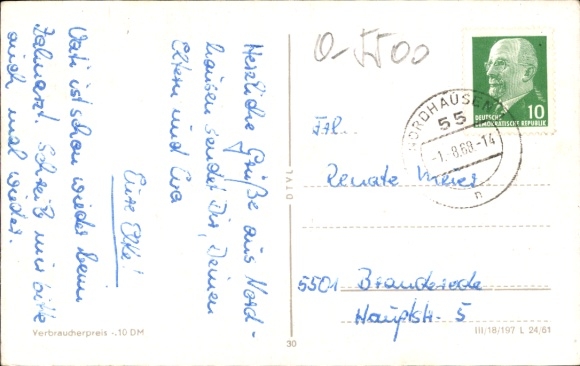 0-5500
Herzliche Grüße aus Nord-
hausen sendet Dir, Deinen
Eltern und Eva
Eure Elke!
Vati ist schon wieder beim
Zahnarzt. Schreib mir bitte
auch mal wieder.
Verbraucherpreis -.10 DM
DTVL
30
NORDHAUSEN
55
-1.-8.68-14
n
10
DEUTSCHE
DEMOKRATISCHE REPUBLIK
Frl.
Renate Meier
5501
Hauptstr. 5
III/18/197 L 24/61